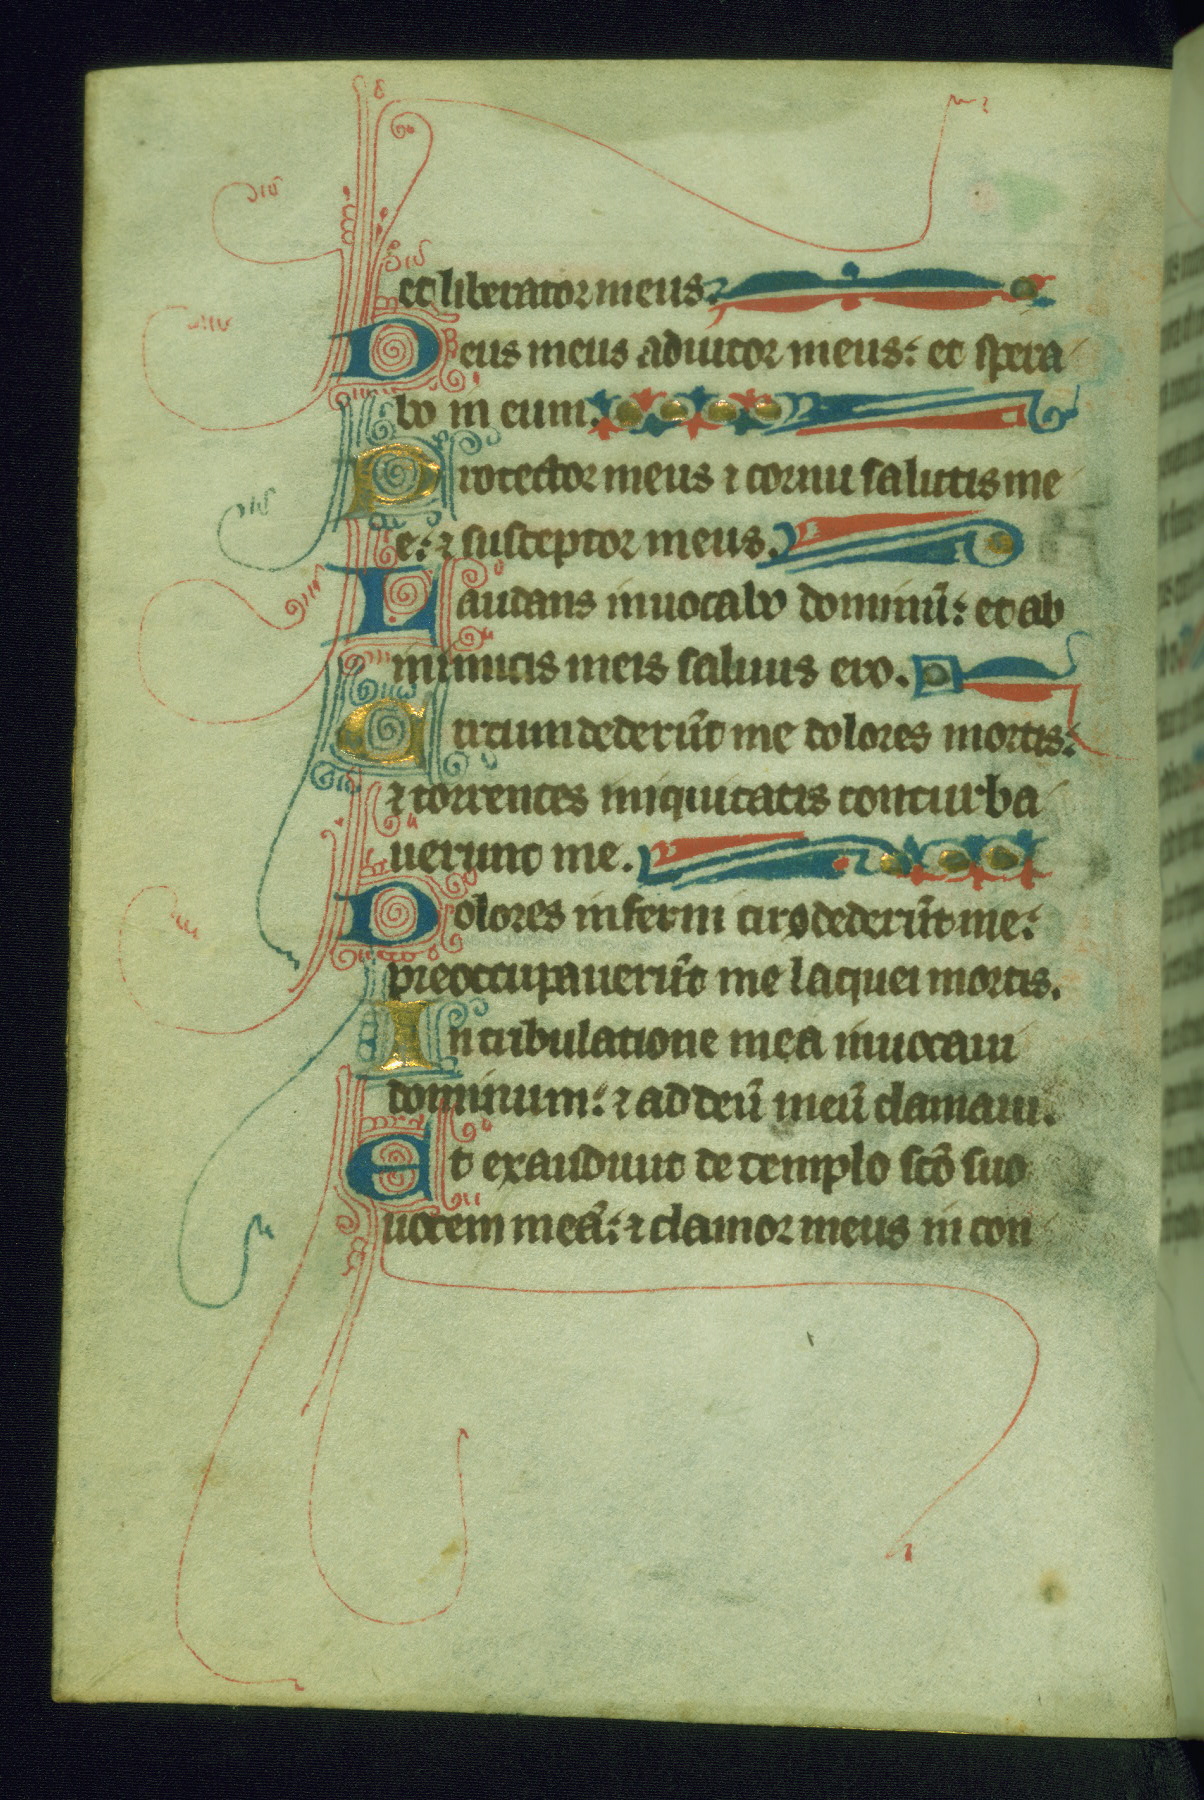 et liberator meus.
Deus meus adiutor meus: et spera
bo in eum.
Protector meus ⁊ cornu salutis me
e: ⁊ susceptor meus.
Laudans inuocabo dominū: et ab
inimicis meis saluus ero.
Circumdederūt me dolores mortis:
⁊ torrentes iniquitatis conturba
uerunt me.
Dolores inferni circūdederūt me:
preoccupauerūt me laquei mortis.
In tribulatione mea inuocaui
dominum: ⁊ ad deū meū clamaui.
Et exaudiuit de templo scō suo
uocem meā: ⁊ clamor meus in con